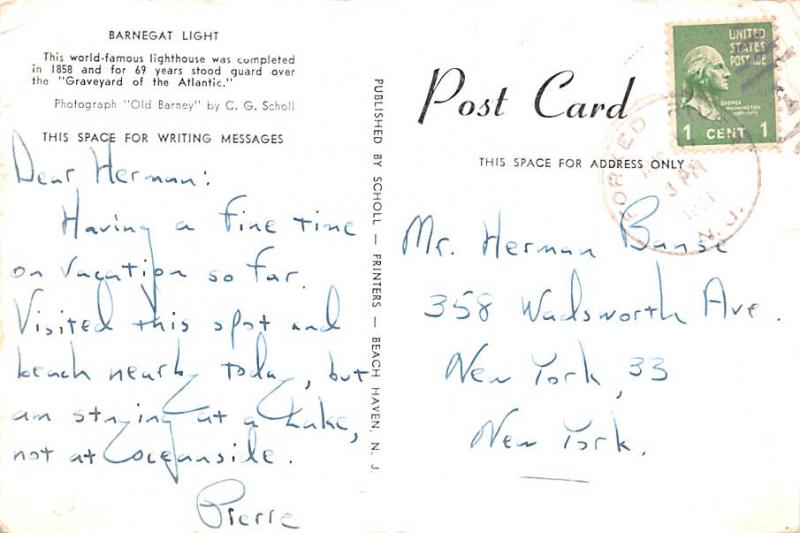 BARNEGAT LIGHT
This world-famous lighthouse was completed
in 1858 and for 69 years stood guard over
the "Graveyard of the Atlantic."
Photograph "Old Barney" by C. G. Scholl
THIS SPACE FOR WRITING MESSAGES
Dear Herman:
Having a fine time
on vacation so far.
Visited this spot and
beach nearby today, but
am staying at a Lake,
not at Oceanside.
Pierre
PUBLISHED BY SCHOLL — PRINTERS — BEACH HAVEN, N. J.
Post Card
THIS SPACE FOR ADDRESS ONLY
UNITED
STATES
POSTAGE
GEORGE
WASHINGTON
1 CENT 1
3 PM
N. J.
Mr. Herman Banse
358 Wadsworth Ave.
New York, 33
New York.